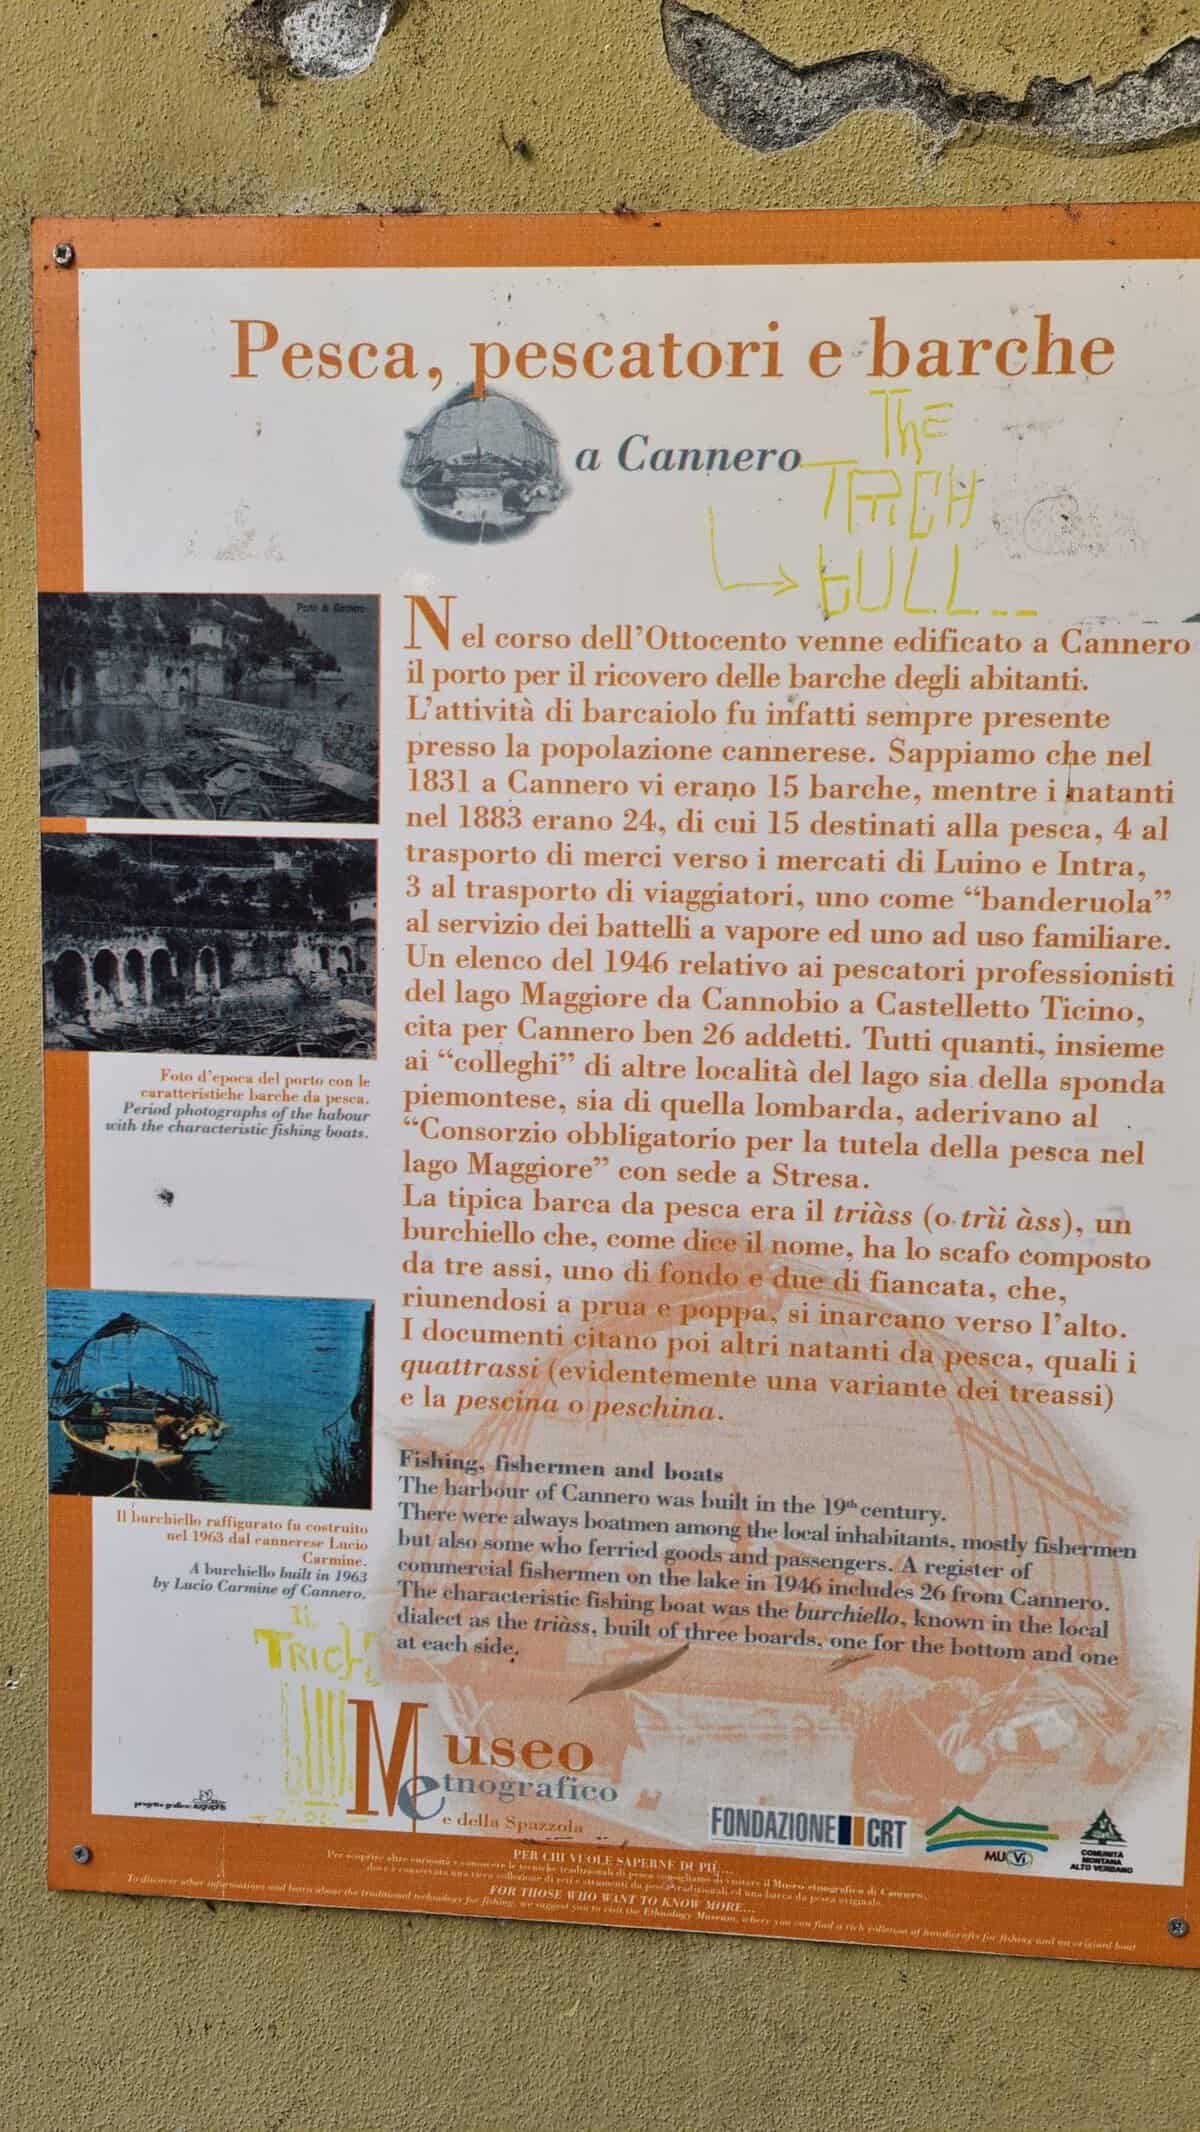 Pesca, pescatori e barche
a Cannero
THE
TRICH
BULL...
Porto di Cannero
Nel corso dell'Ottocento venne edificato a Cannero
il porto per il ricovero delle barche degli abitanti.
L'attività di barcaiolo fu infatti sempre presente
presso la popolazione cannerese. Sappiamo che nel
1831 a Cannero vi erano 15 barche, mentre i natanti
nel 1883 erano 24, di cui 15 destinati alla pesca, 4 al
trasporto di merci verso i mercati di Luino e Intra,
3 al trasporto di viaggiatori, uno come “banderuola”
al servizio dei battelli a vapore ed uno ad uso familiare.
Un elenco del 1946 relativo ai pescatori professionisti
del lago Maggiore da Cannobio a Castelletto Ticino,
cita per Cannero ben 26 addetti. Tutti quanti, insieme
ai “colleghi” di altre località del lago sia della sponda
piemontese, sia di quella lombarda, aderivano al
“Consorzio obbligatorio per la tutela della pesca nel
lago Maggiore” con sede a Stresa.
La tipica barca da pesca era il triàss (o trìi àss), un
burchiello che, come dice il nome, ha lo scafo composto
da tre assi, uno di fondo e due di fiancata, che,
riunendosi a prua e poppa, si inarcano verso l'alto.
I documenti citano poi altri natanti da pesca, quali i
quattrassi (evidentemente una variante dei treassi)
e la pescina o peschina.
Foto d'epoca del porto con le
caratteristiche barche da pesca.
Period photographs of the habour
with the characteristic fishing boats.
Fishing, fishermen and boats
The harbour of Cannero was built in the 19th century.
There were always boatmen among the local inhabitants, mostly fishermen
but also some who ferried goods and passengers. A register of
commercial fishermen on the lake in 1946 includes 26 from Cannero.
The characteristic fishing boat was the burchiello, known in the local
dialect as the triàss, built of three boards, one for the bottom and one
at each side.
Il burchiello raffigurato fu costruito
nel 1963 dal cannerese Lucio
Carmine.
A burchiello built in 1963
by Lucio Carmine of Cannero.
IL
TRICH
Museo
etnografico
e della Spazzola
progetto grafico:
FONDAZIONE CRT
MU Vi
COMUNITÀ
MONTANA
ALTO VERBANO
PER CHI VUOLE SAPERNE DI PIÙ...
Per scoprire altre curiosità e conoscere le tecniche tradizionali di pesca consigliamo di visitare il Museo etnografico di Cannero,
dove è conservata una ricca collezione di reti e strumenti da pesca tradizionali ed una barca da pesca originale.
FOR THOSE WHO WANT TO KNOW MORE...
To discover other informations and learn about the traditional technology for fishing, we suggest you to visit the Ethnology Museum, where you can find a rich collation of handicrafts for fishing and an original boat